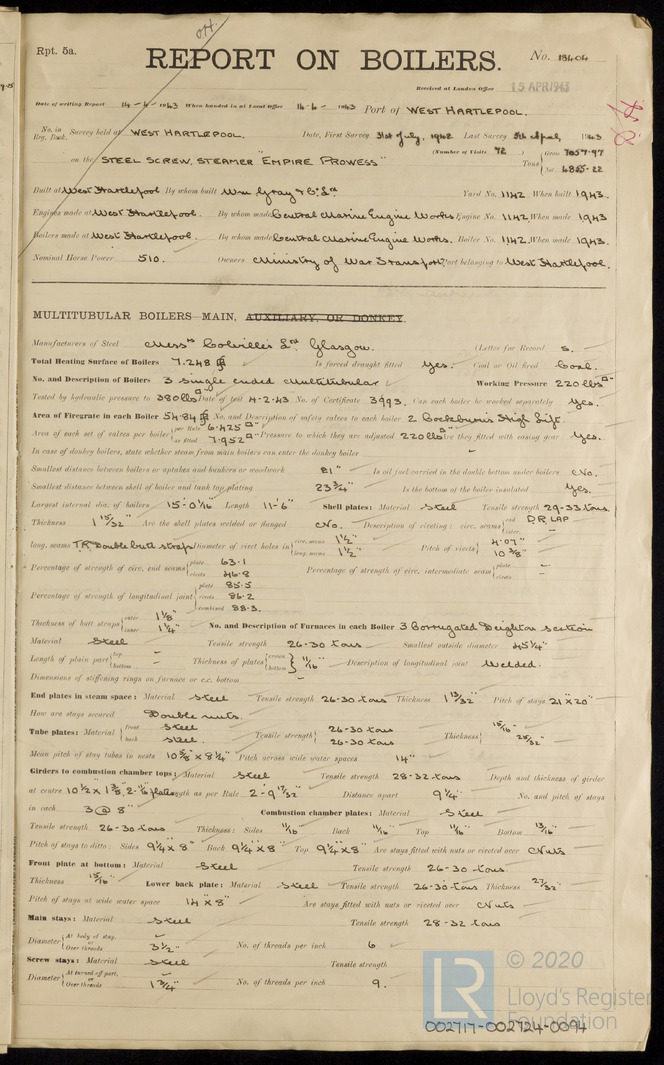 Rpt. 5a.
REPORT ON BOILERS.
No. 18404
Received at London Office 15 APR 1943
Date of writing Report 14-4-1943 When handed in at Local Office 14-4-1943 Port of WEST HARTLEPOOL.
No. in Reg. Book. Survey held at WEST HARTLEPOOL. Date, First Survey 31st July, 1942 Last Survey 8th April, 1943
(Number of Visits 72)
on the STEEL SCREW, STEAMER "EMPIRE PROWESS" Tons { Gross 7057.97 Net 4855.22
Built at West Hartlepool By whom built Wm Gray & Co Ld Yard No. 1142 When built 1943.
Engines made at West Hartlepool. By whom made Central Marine Engine Works. Engine No. 1142 When made 1943
Boilers made at West Hartlepool. By whom made Central Marine Engine Works. Boiler No. 1142 When made 1943.
Nominal Horse Power 510. Owners Ministry of War Transport Port belonging to West Hartlepool.
MULTITUBULAR BOILERS—MAIN, AUXILIARY, OR DONKEY.
Manufacturers of Steel Messrs Colvilles Ld Glasgow. (Letter for Record S.
Total Heating Surface of Boilers 7.248 Is forced draught fitted Yes. Coal or Oil fired Coal.
No. and Description of Boilers 3 single ended Multitubular Working Pressure 220 lbs
Tested by hydraulic pressure to 380 lbs Date of test 4-2-43 No. of Certificate 3993. Can each boiler be worked separately Yes.
Area of Firegrate in each Boiler 54.84 No. and Description of safety valves to each boiler 2 Cockburns High Lift.
Area of each set of valves per boiler { per Rule 6.425 as fitted 7.952 Pressure to which they are adjusted 220 lbs Are they fitted with easing gear Yes.
In case of donkey boilers, state whether steam from main boilers can enter the donkey boiler -
Smallest distance between boilers or uptakes and bunkers or woodwork 21" Is oil fuel carried in the double bottom under boilers No.
Smallest distance between shell of boiler and tank top plating 23¾" Is the bottom of the boiler insulated Yes.
Largest internal dia. of boilers 15'-0 1/16" Length 11'-6" Shell plates: Material Steel Tensile strength 29-33 tons.
Thickness 1 15/32" Are the shell plates welded or flanged No. Description of riveting: circ. seams { end D.R. LAP inter. -
long. seams T.R. Double butt straps Diameter of rivet holes in { circ. seams 1½" long. seams 1½" Pitch of rivets { 4.07" 10 3/8"
Percentage of strength of circ. end seams { plate 63.1 rivets 46.8 Percentage of strength of circ. intermediate seam { plate - rivets -
Percentage of strength of longitudinal joint { plate 85.5 rivets 86.2 combined 88.3.
Thickness of butt straps { outer 1⅛" inner 1¼" No. and Description of Furnaces in each Boiler 3 Corrugated Deighton section
Material Steel Tensile strength 26-30 tons Smallest outside diameter 45¼"
Length of plain part { top - bottom - Thickness of plates { crown bottom } 11/16" Description of longitudinal joint Welded.
Dimensions of stiffening rings on furnace or c.c. bottom -
End plates in steam space: Material Steel Tensile strength 26-30 tons Thickness 1 13/32" Pitch of stays 21" x 20"
How are stays secured Double nuts.
Tube plates: Material { front Steel back Steel. Tensile strength { 26-30 tons 26-30 tons Thickness { 15/16" 25/32"
Mean pitch of stay tubes in nests 10 5/8" x 8¼" Pitch across wide water spaces 14"
Girders to combustion chamber tops: Material Steel Tensile strength 28-32 tons Depth and thickness of girder
at centre 10½ x 1⅜, 2-11/16 plates Length as per Rule 2'-9 17/32" Distance apart 9¼" No. and pitch of stays
in each 3 @ 8" Combustion chamber plates: Material Steel
Tensile strength 26-30 tons Thickness: Sides 11/16" Back 11/16" Top 11/16" Bottom 13/16"
Pitch of stays to ditto: Sides 9¼" x 8" Back 9¼" x 8" Top 9¼" x 8" Are stays fitted with nuts or riveted over Nuts
Front plate at bottom: Material Steel Tensile strength 26-30 tons.
Thickness 15/16" Lower back plate: Material Steel Tensile strength 26-30 tons Thickness 27/32"
Pitch of stays at wide water space 14" x 8" Are stays fitted with nuts or riveted over Nuts
Main stays: Material Steel Tensile strength 28-32 tons
Diameter { At body of stay, - or Over threads 3½" No. of threads per inch 6
Screw stays: Material Steel Tensile strength
Diameter { At turned off part, - or Over threads 1¾" No. of threads per inch 9.
LR © 2020
Lloyd's Register
Foundation
002717-002724-0094